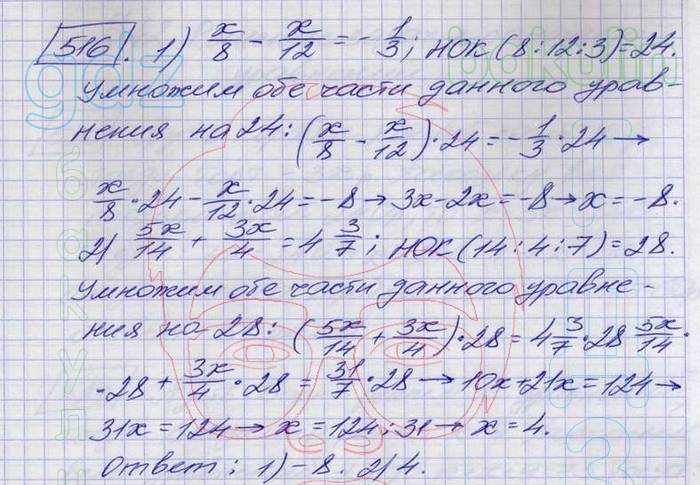 516. 1) x/8 - x/12 = -1/3; НОК (8:12:3)=24.
Умножим обе части данного урав-
нения на 24: (x/8 - x/12)·24 = -1/3·24 →
x/8·24 - x/12·24 = -8 → 3x-2x=-8 → x=-8.
2) 5x/14 + 3x/4 = 4 3/7; НОК (14:4:7)=28.
Умножим обе части данного уравне-
ния на 28: (5x/14 + 3x/4)·28 = 4 3/7·28 5x/14·
·28 + 3x/4·28 = 31/7·28 → 10x+21x=124 →
31x=124 → x=124:31 → x=4.
Ответ: 1) -8. 2) 4.